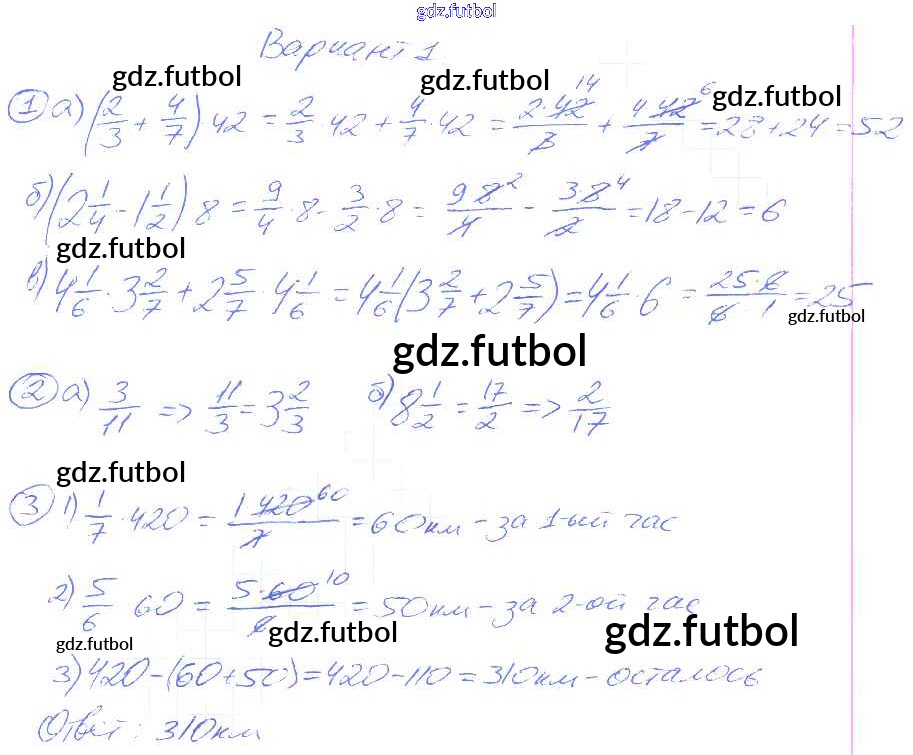 gdz.futbol
Вариант 1
gdz.futbol gdz.futbol gdz.futbol
① а) (2/3 + 4/7) 42 = 2/3 · 42 + 4/7 · 42 = 2·42 14/3 + 4 42 6/7 = 28 + 24 = 52
б) (2 1/4 - 1 1/2) 8 = 9/4 · 8 - 3/2 · 8 = 9 8 2/4 - 3·8 4/2 = 18 - 12 = 6
gdz.futbol
в) 4 1/6 · 3 2/7 + 2 5/7 · 4 1/6 = 4 1/6 (3 2/7 + 2 5/7) = 4 1/6 · 6 = 25·6/6·1 = 25
gdz.futbol
gdz.futbol
② а) 3/11 => 11/3 = 3 2/3 б) 8 1/2 = 17/2 => 2/17
gdz.futbol
③ 1) 1/7 · 420 = 1 420 60/7 = 60 км - за 1-ый час
2) 5/6 60 = 5·60 10/6 = 50 км - за 2-ой час
gdz.futbol gdz.futbol gdz.futbol
3) 420 - (60 + 50) = 420 - 110 = 310 км - осталось
Ответ: 310 км